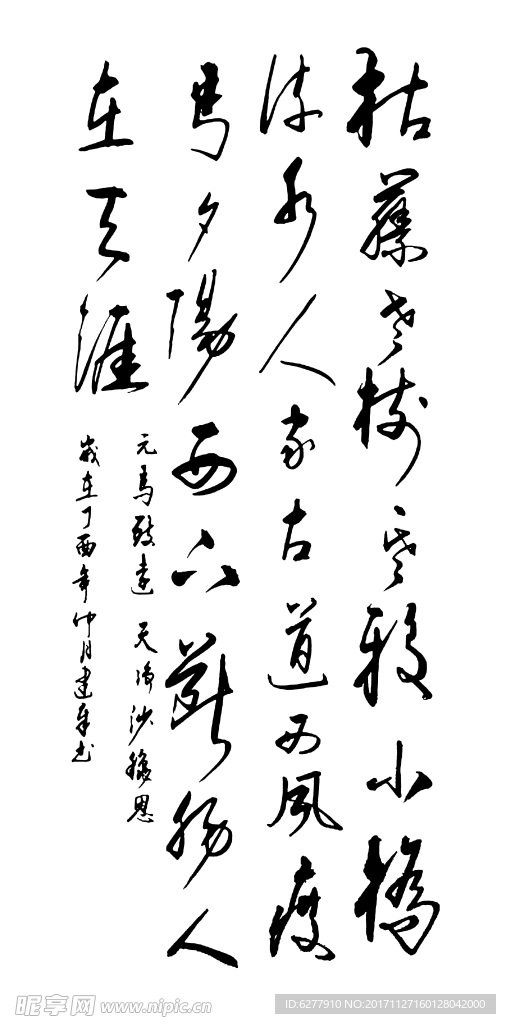 枯藤老樹昏鴉小橋
流水人家古道西風瘦
馬夕陽西下斷腸人
在天涯
元馬致遠 天净沙 秋思
歲在丁酉年仲月建书
昵享网 www.nipic.cn
ID:6277910 NO:20171127160128042000